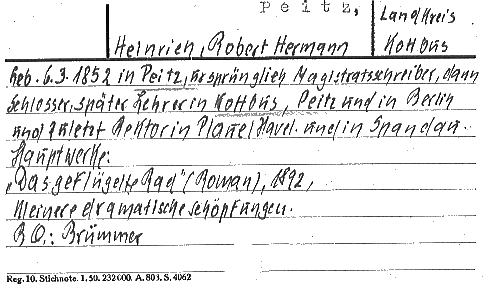 Peitz,
Landkreis
Kottbus
Heinrich, Robert Hermann
Geb. 6.3.1852 in Peitz, ursprünglich Magistratsschreiber, dann
Schlosser, später Lehrer in Kottbus, Peitz und in Berlin
und zuletzt Rektor in Plaue/Havel. und in Spandau.
Hauptwerke:
„Das geflügelte Rad" (Roman), 1892,
Kleinere dramatische Schöpfungen.
BQ.: Brümmer
Reg. 10. Stichnote. 1. 50. 232000. A. 803. S. 4062